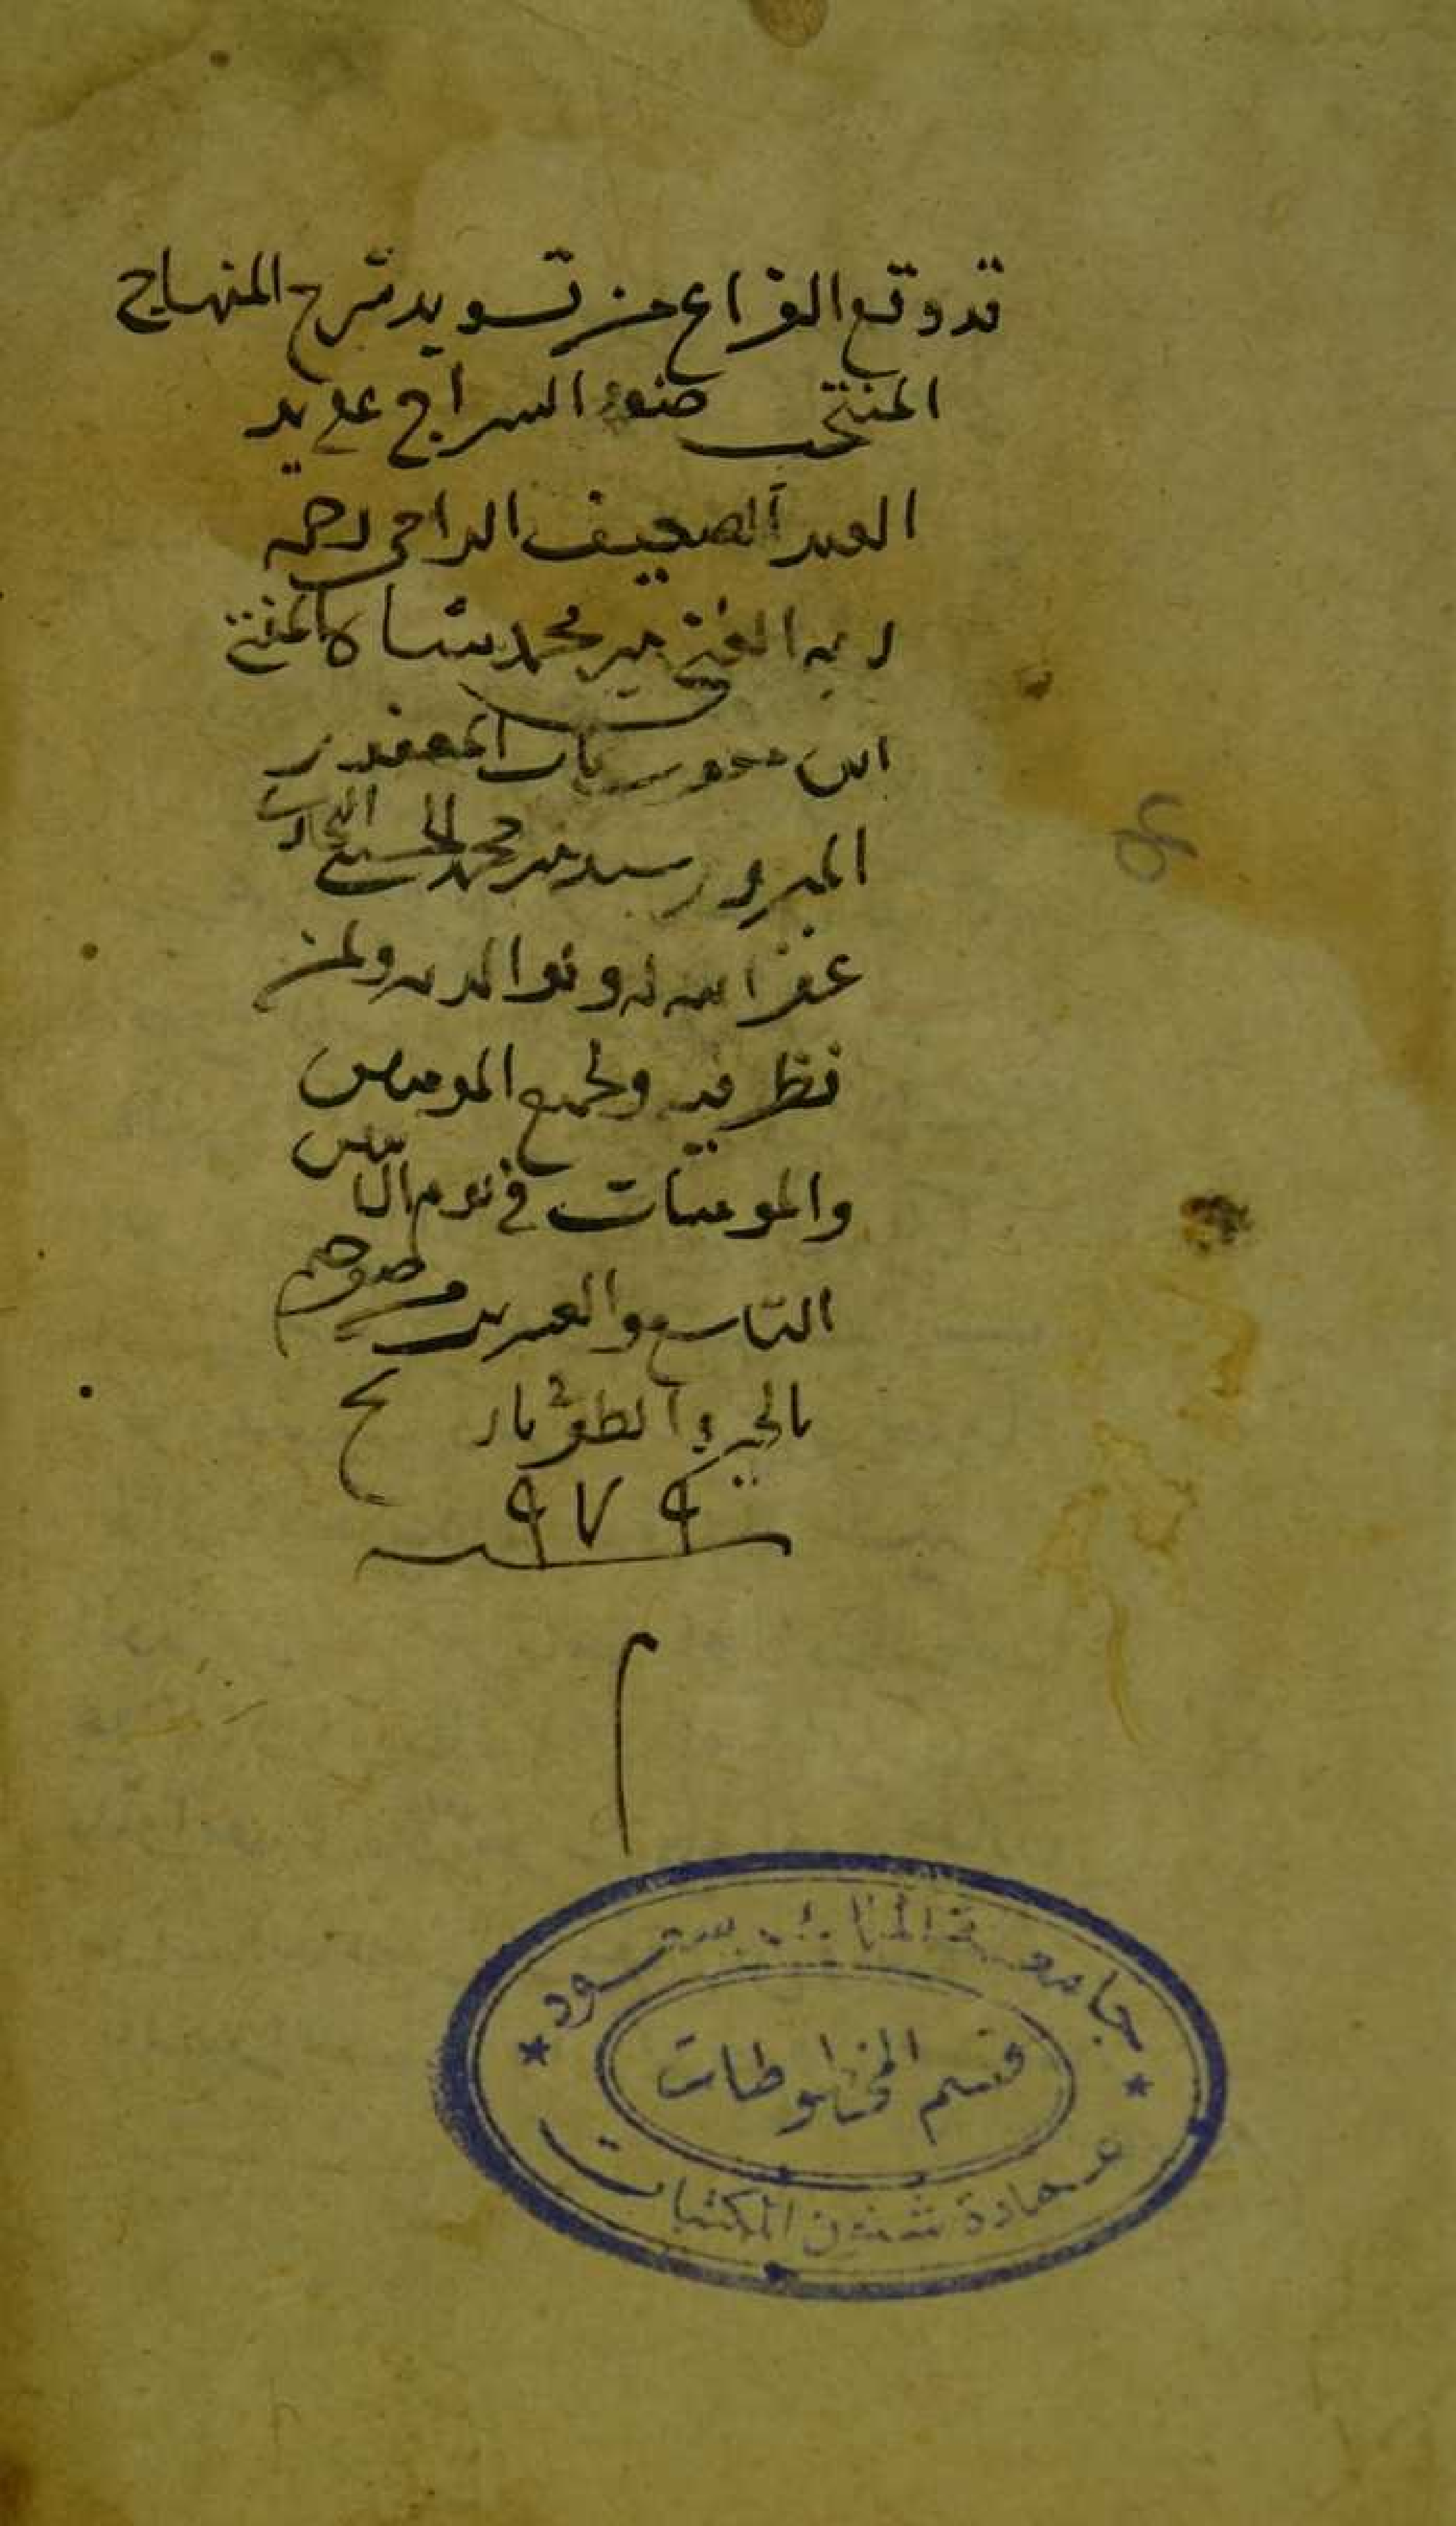 قد وقع الفراغ من تسويد شرح المنهاج
المنتخب ضوء السراج على يد
العبد الضعيف الراجي رحمه
ربه الغني مير محمد شاه
ابن المغفور
المبرور سيد مير محمد الحسيني البخاري
غفر الله له ولوالديه ولمن
نظر فيه ولجميع المومنين
والمومنات في يوم الاثنين
التاسع والعشرين من صفر ختم
بالخير والظفر
سنة ٩٧٩
جامعة الملك سعود
قسم المخطوطات
عمادة شئون المكتبات